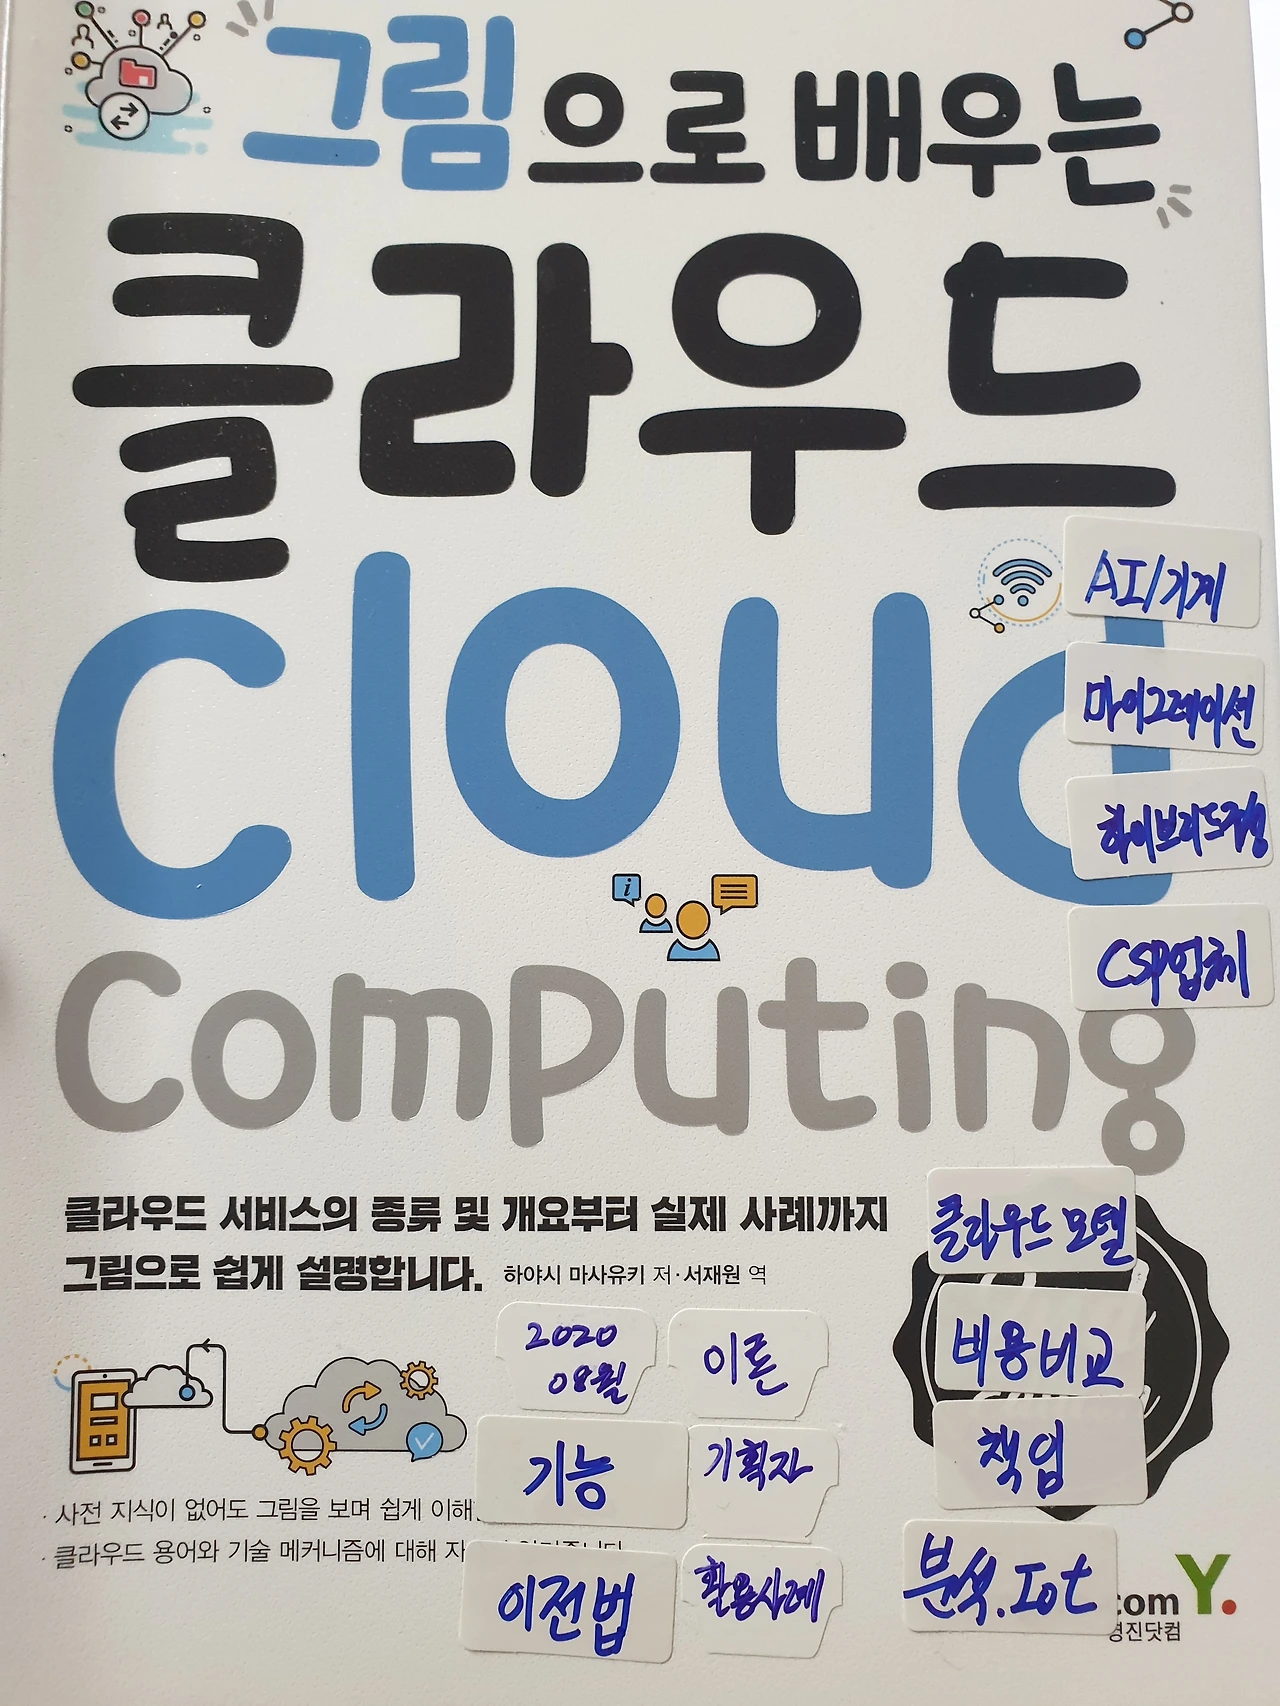 그림으로 배우는
클라우드
Cloud
AI/기계
마이그레이션
하이브리드구성
CSP업체
Computing
클라우드 서비스의 종류 및 개요부터 실제 사례까지
그림으로 쉽게 설명합니다.
하야시 마사유키 저·서재원 역
클라우드 모델
비용비교
책업
분석.Iot
2020
08월
이론
기능
기획자
이전법
활용사례
· 사전 지식이 없어도 그림을 보며 쉽게 이해
· 클라우드 용어와 기술 메커니즘에 대해
.com Y.
영진닷컴